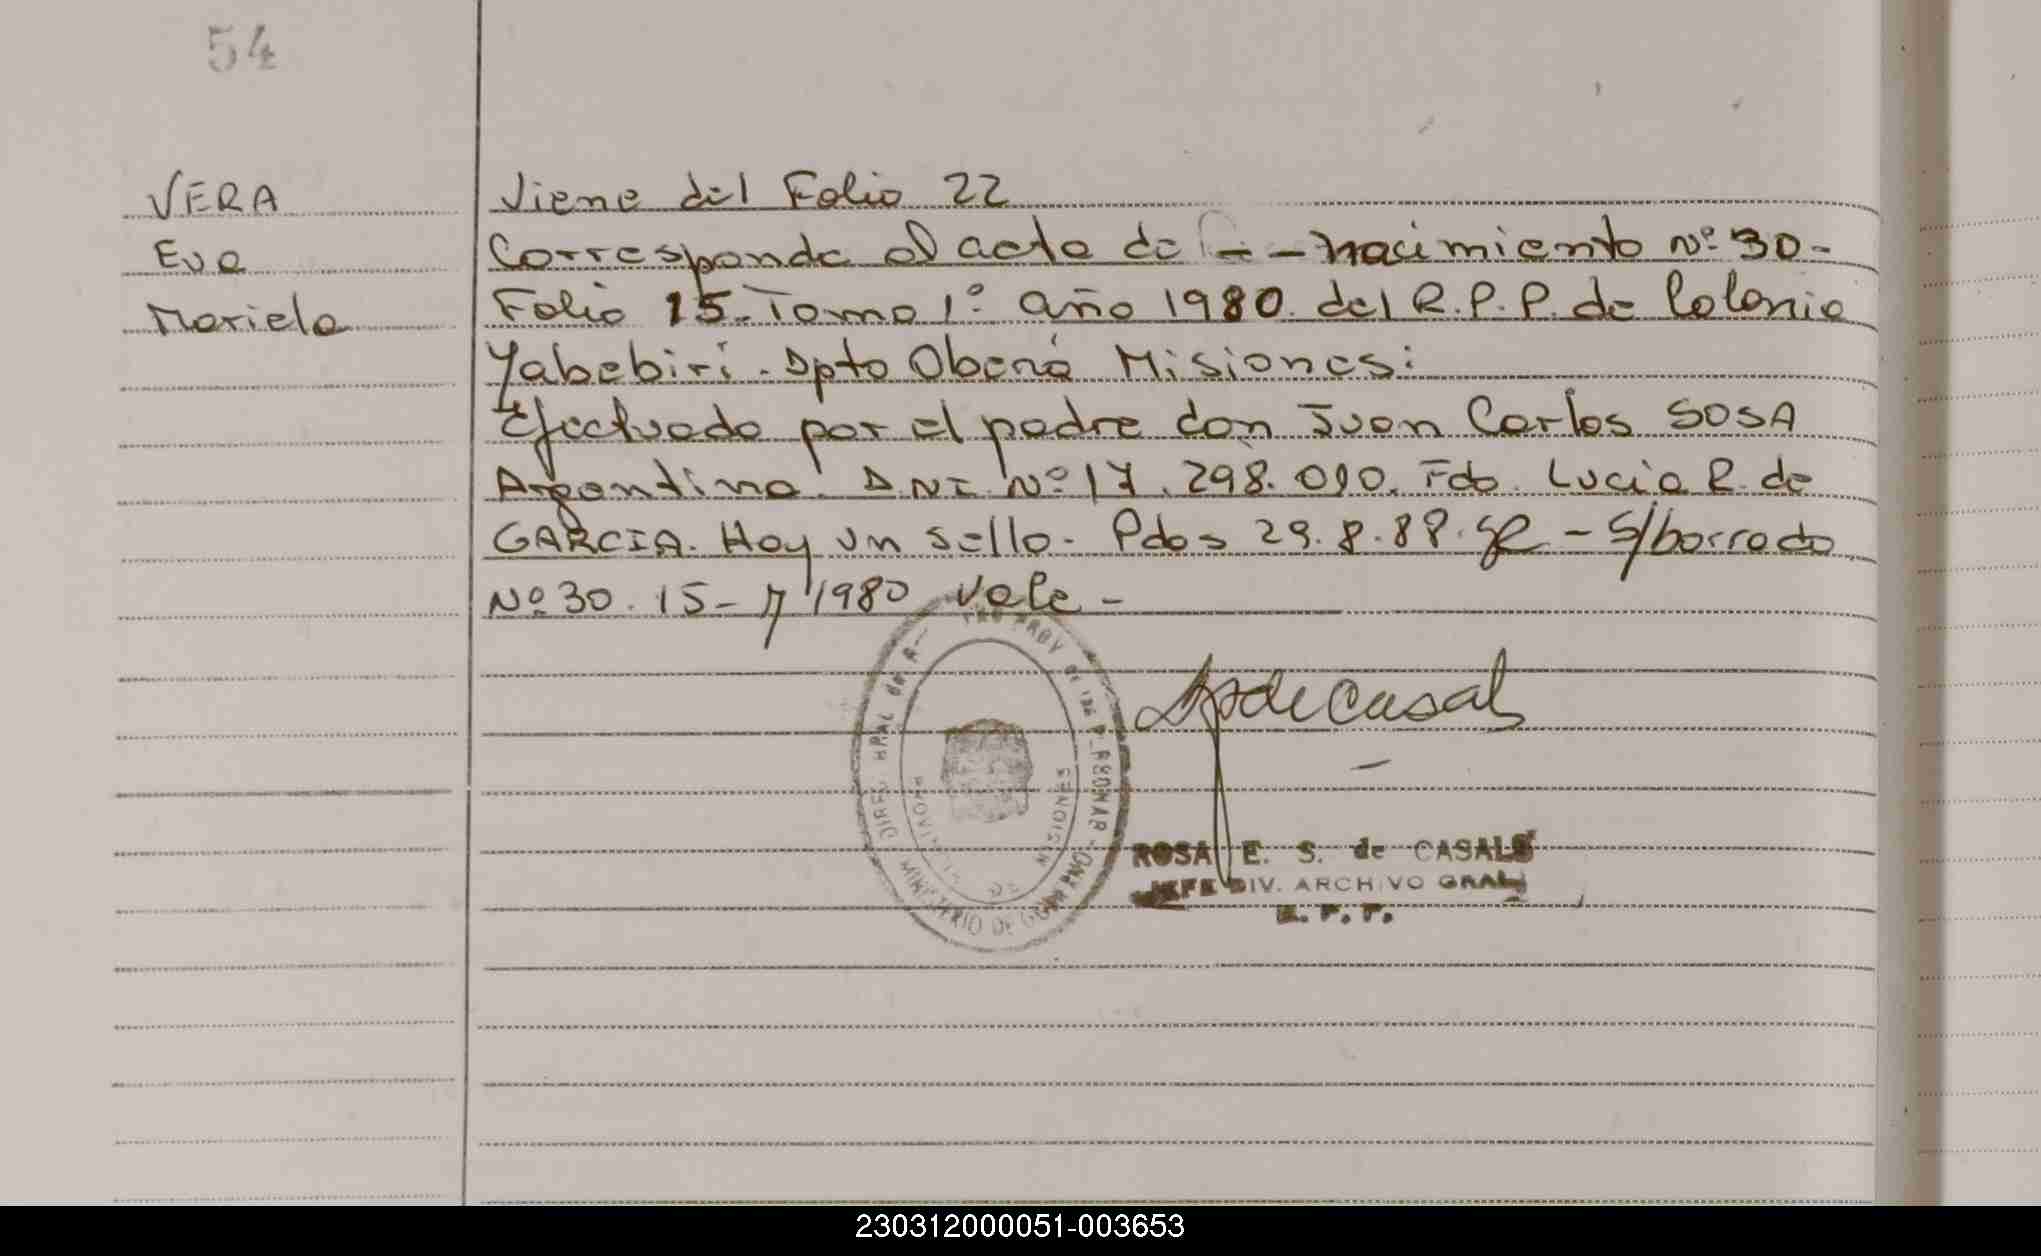 54
VERA
Eva
Mariela
Viene del Folio 22
Corresponde al acta de - - nacimiento Nº 30-
Folio 15. Tomo 1º año 1980. del R.P.P. de Colonia
Yabebiri. Dpto Oberá Misiones:
Efectuado por el padre don Juan Carlos SOSA
Argentino. D.N.I. Nº 17.298.010. Fdo. Lucia R. de
GARCIA. Hay un sello. Pdas 29.8.88. - S/borrado
Nº 30. 15- 7 1980 vale -
MINISTERIO DE GOBIERNO
MISIONES
de Casals
ROSA E. S. de CASALS
JEFE DIV. ARCHIVO GRAL
R. P. P.
230312000051-003653